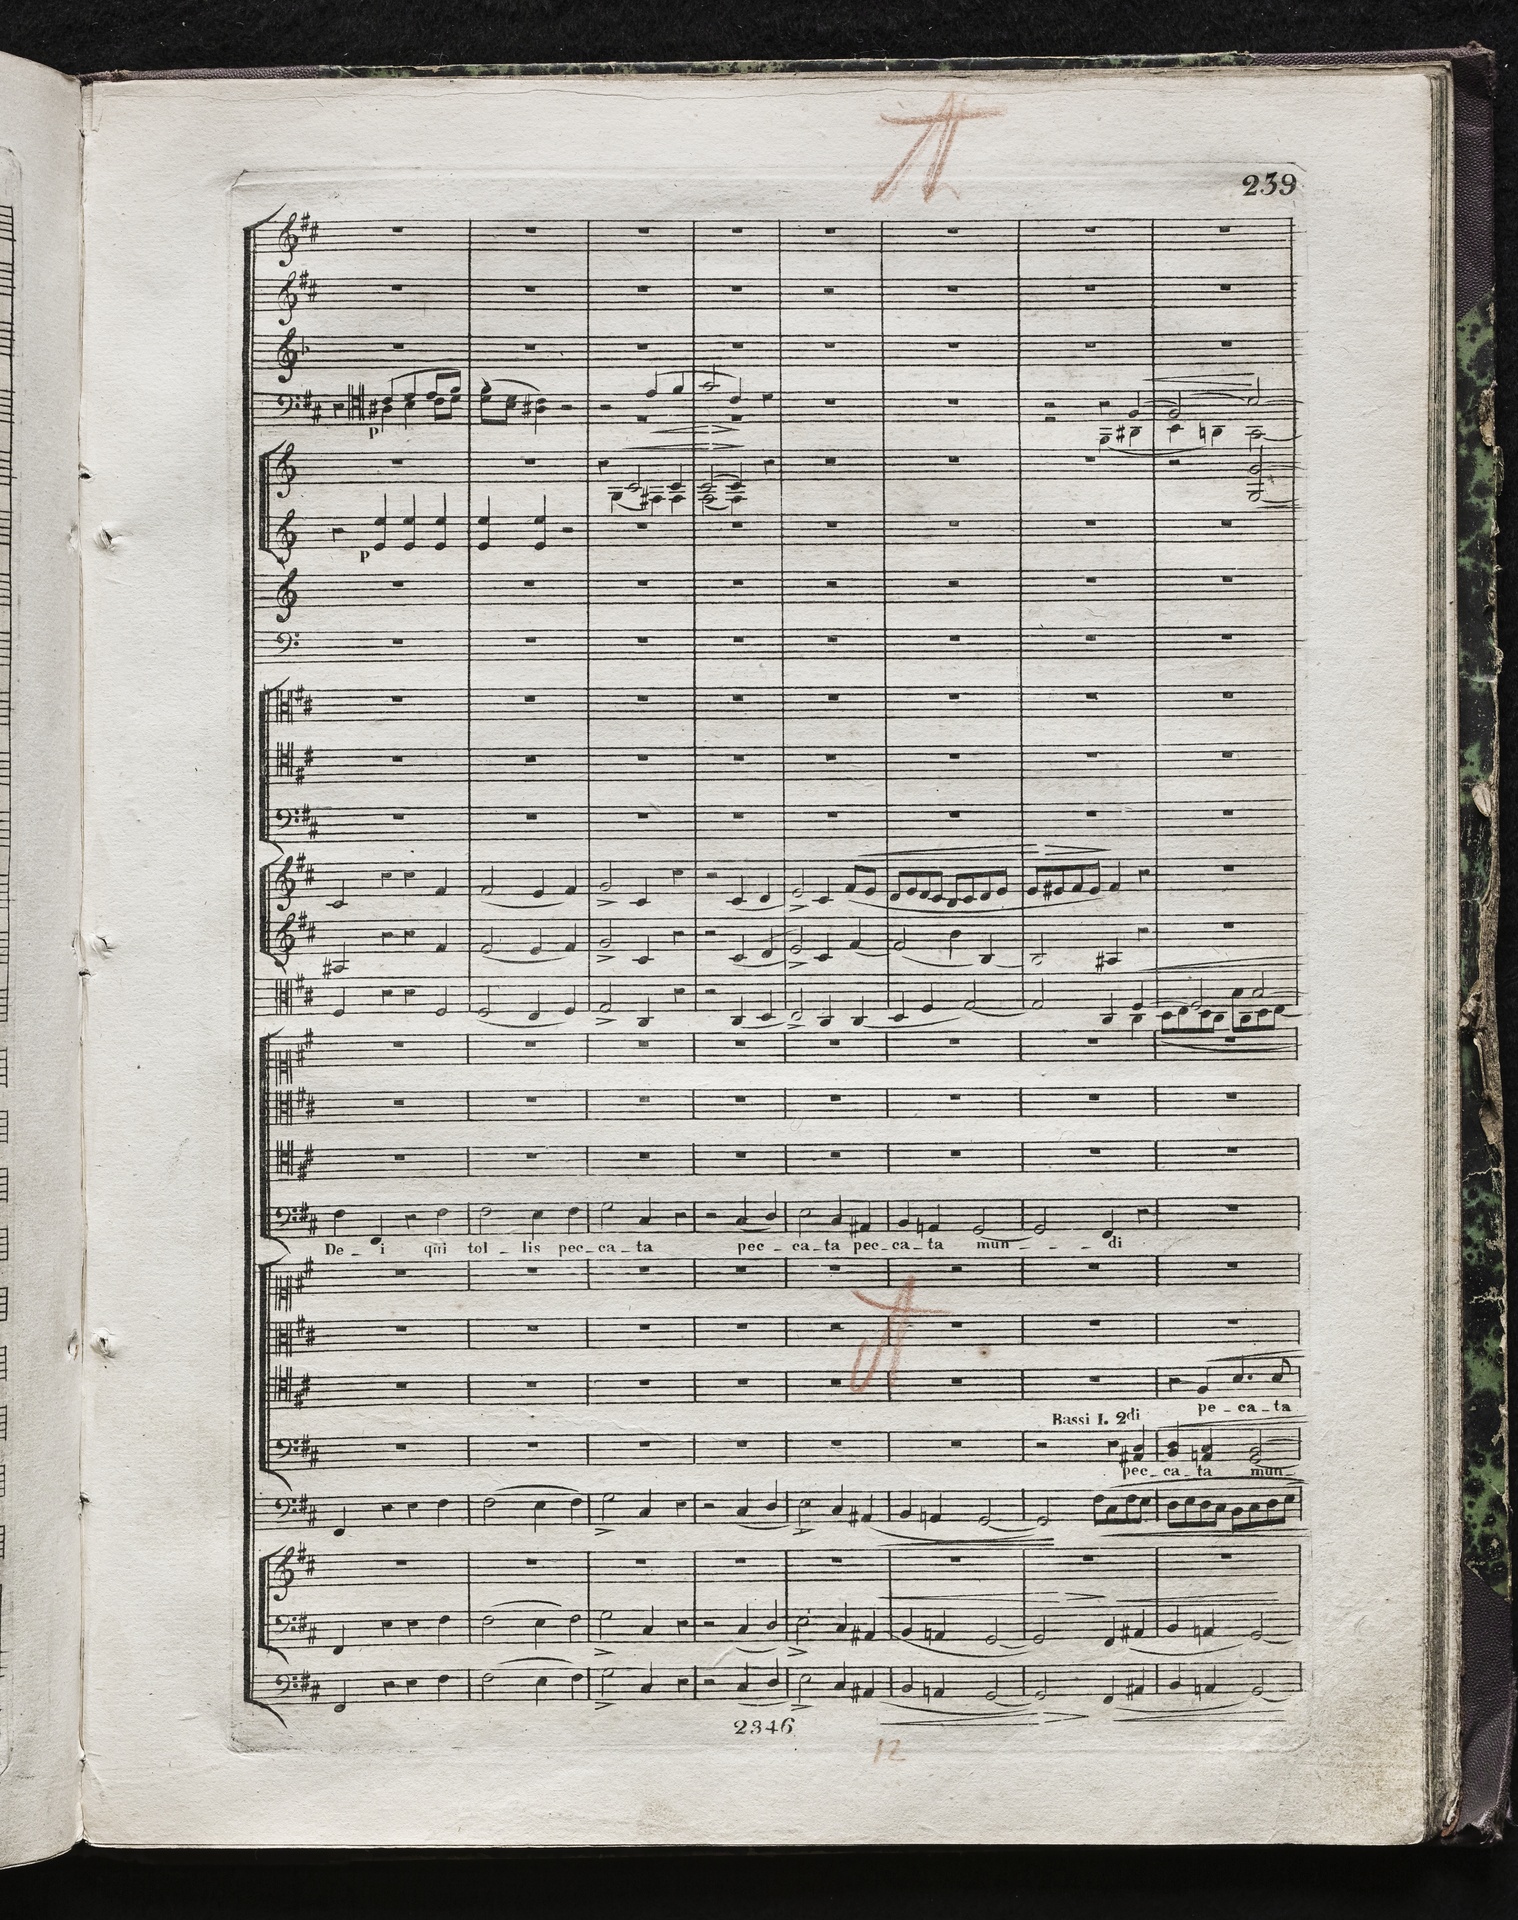 A
239
p
p
De - i qui tol - lis pec - ca - ta pec - ca - ta pec - ca - ta mun - - - di
A
pe - ca - ta
Bassi I. 2di
pec - ca - ta mun -
2346
12